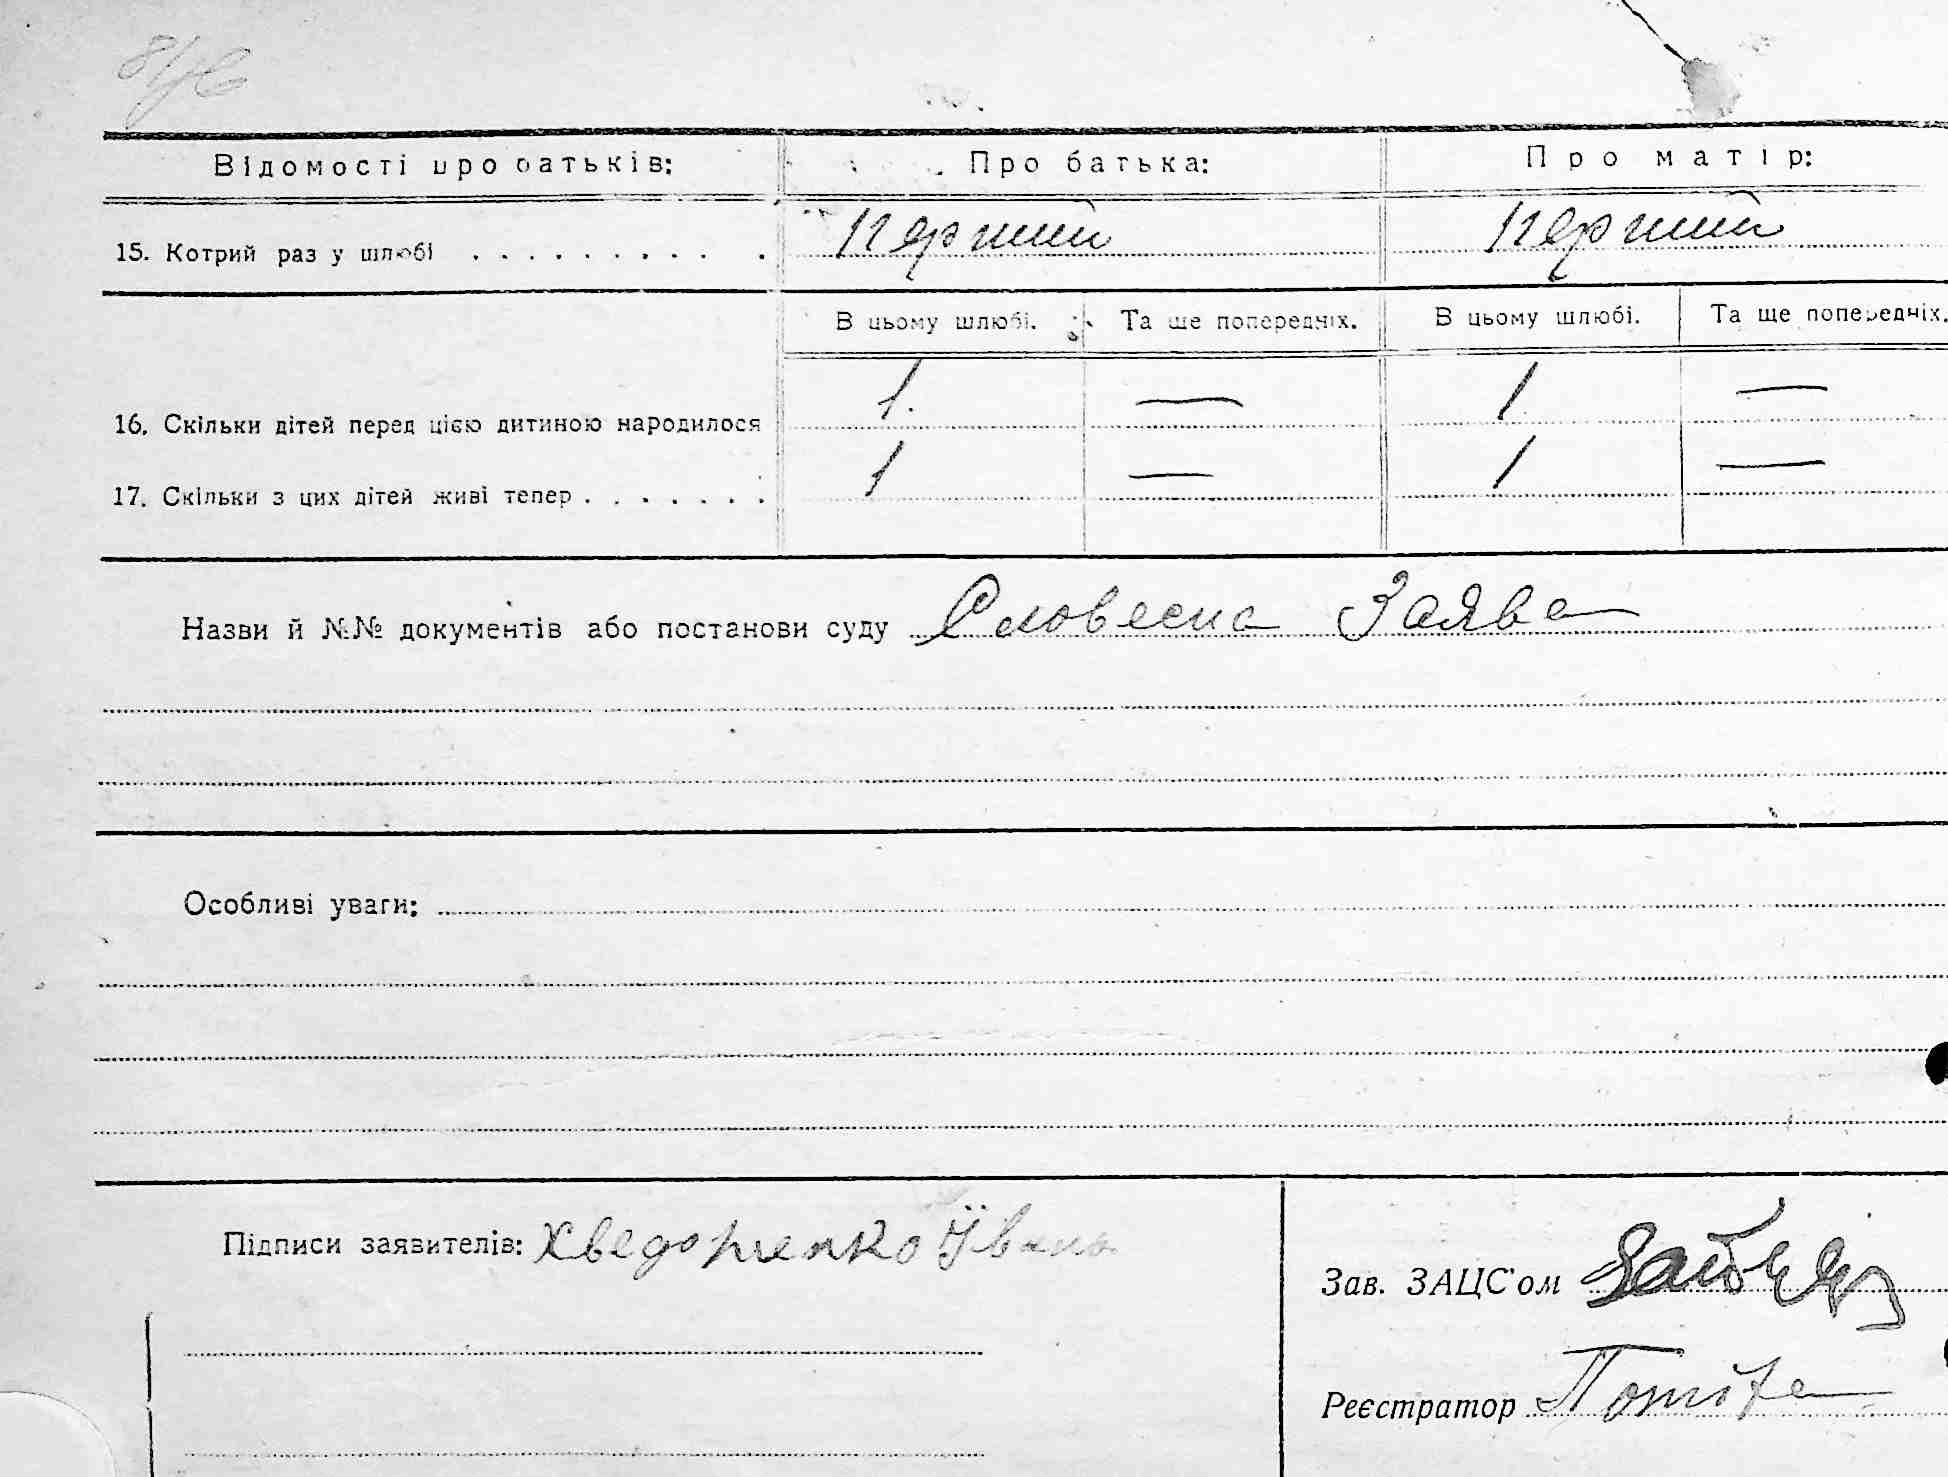 Відомості про батьків: Про батька: Про матір:
15. Котрий раз у шлюбі . . . . . . . . . . перший перший
В цьому шлюбі. Та ще попередніх. В цьому шлюбі. Та ще попередніх.
16. Скільки дітей перед цією дитиною народилося 1. — 1 —
17. Скільки з цих дітей живі тепер . . . . . . . 1 — 1 —
Назви й №№ документів або постанови суду Словесна Заява
Особливі уваги:
Підписи заявителів: Хведорченко Іван
Зав. ЗАЦС'ом
Реєстратор